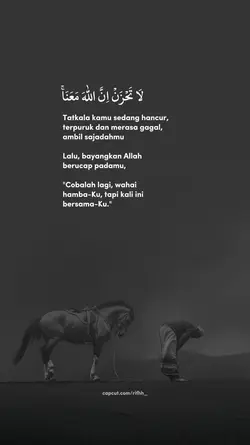 لَا تَحْزَنْ إِنَّ اللَّهَ مَعَنَاۚ
Tatkala kamu sedang hancur,
terpuruk dan merasa gagal,
ambil sajadahmu
Lalu, bayangkan Allah
berucap padamu,
"Cobalah lagi, wahai
hamba-Ku, tapi kali ini
bersama-Ku."